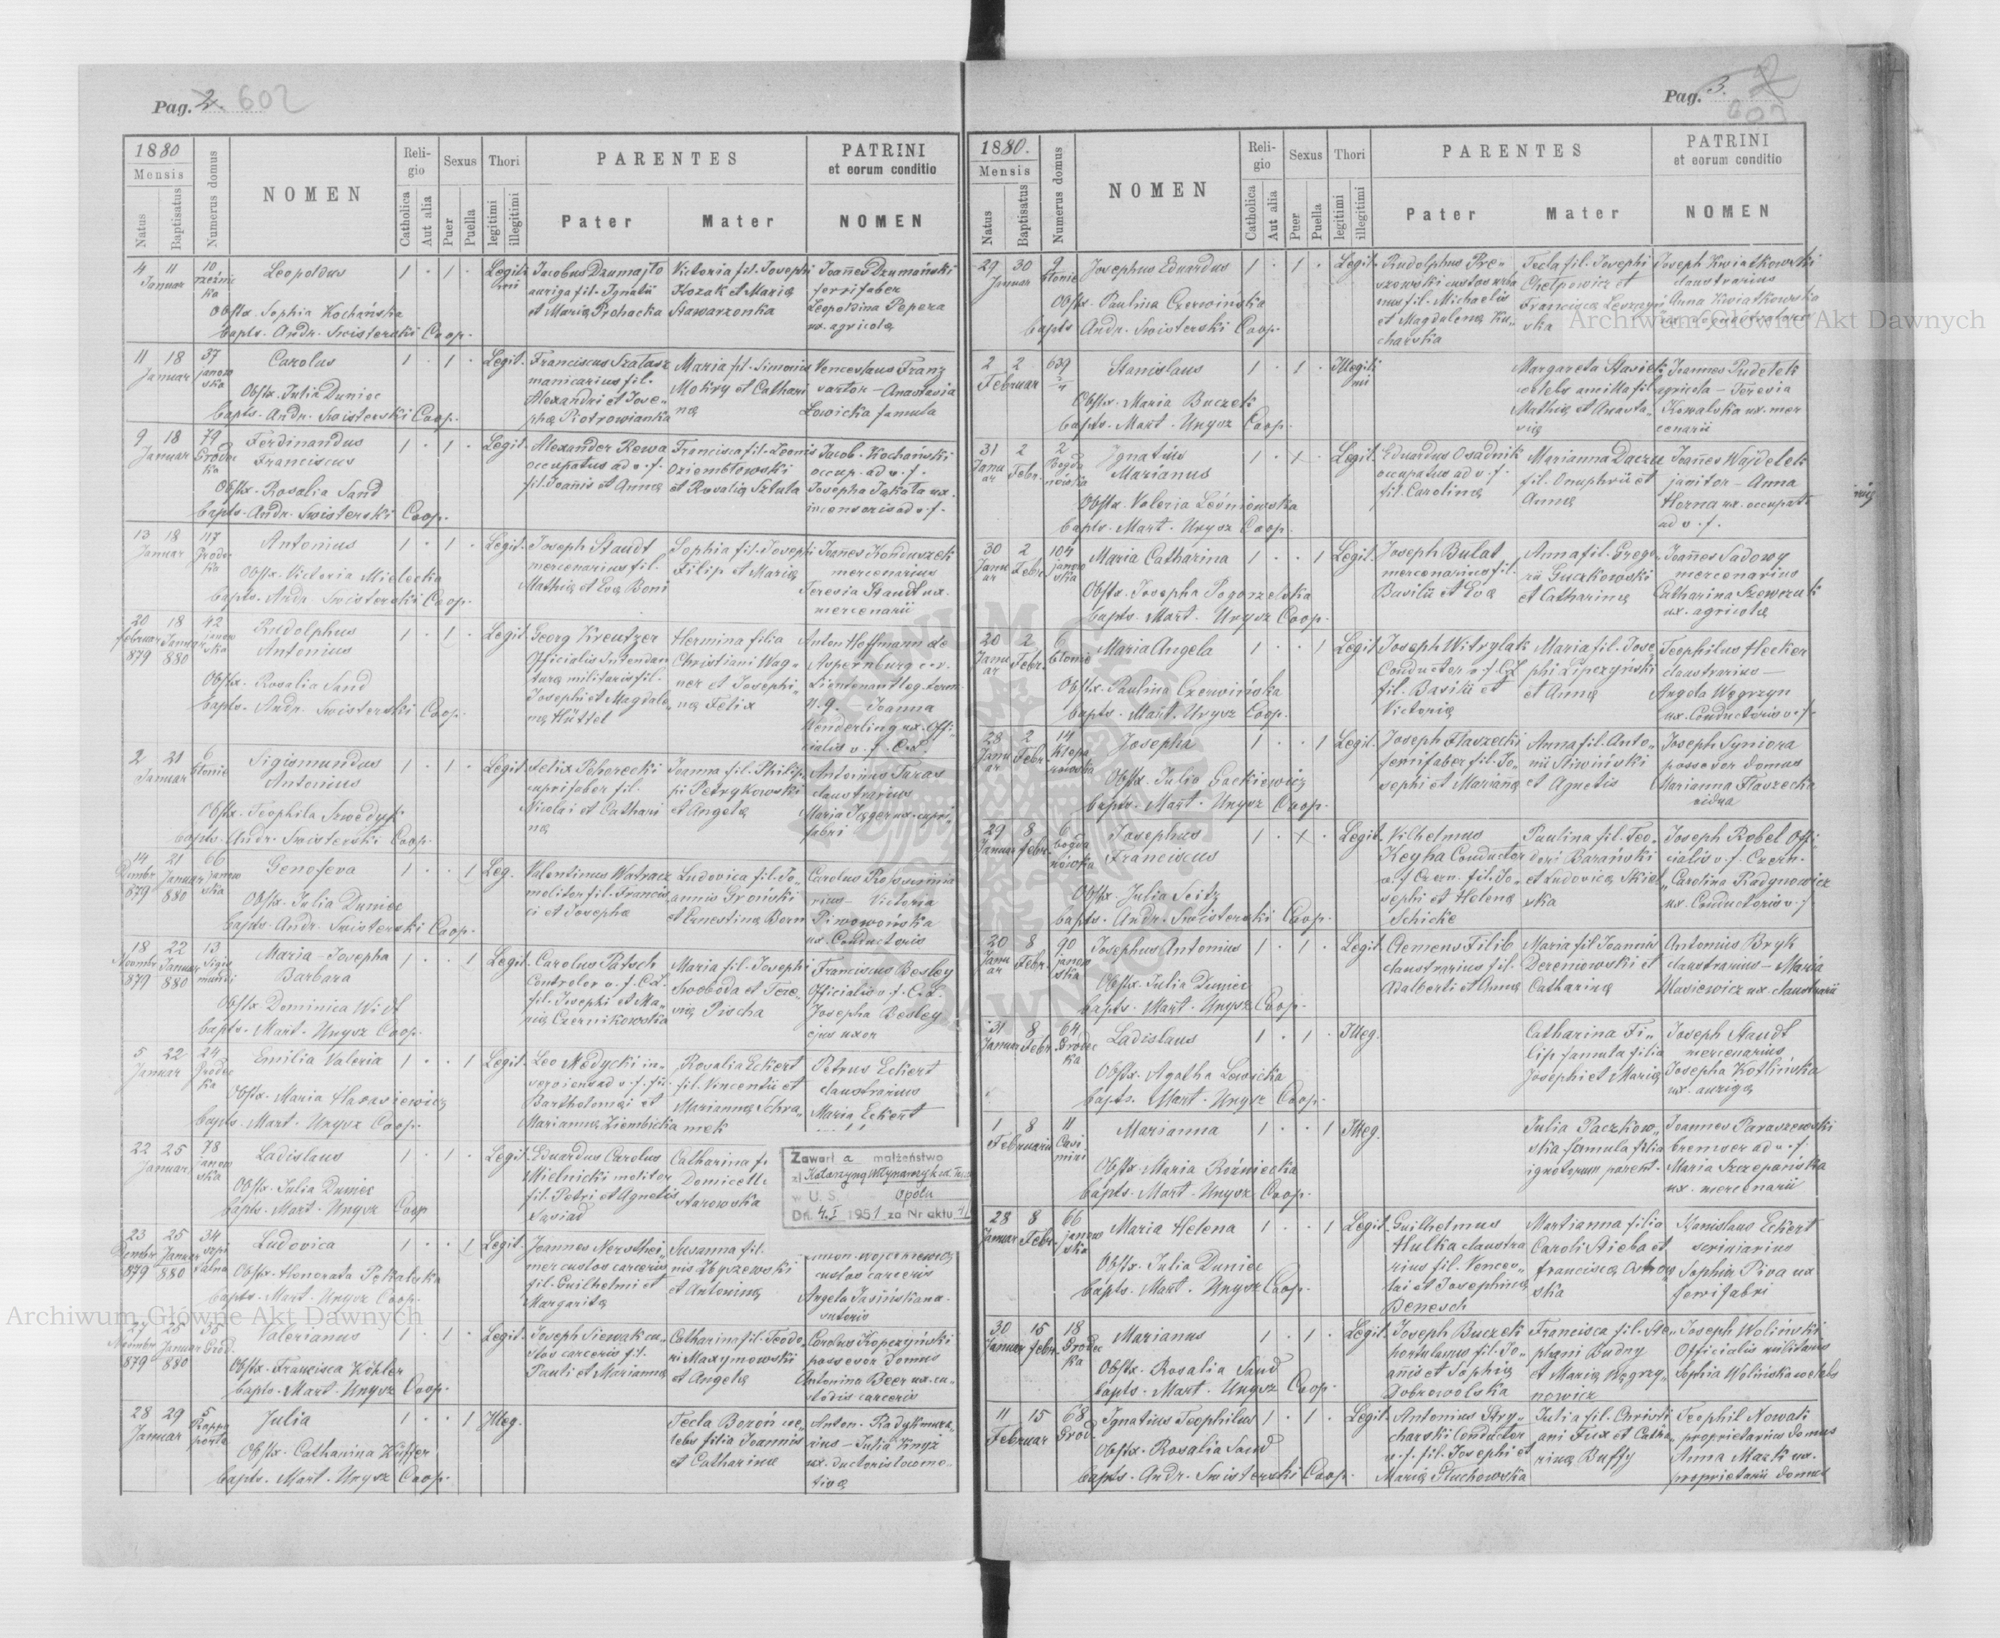 Pag. 2. 602
1880
Mensis
Natus
Baptisatus
Numerus domus
NOMEN
Reli-
gio
Catholica
Aut alia
Sexus
Puer
Puella
Thori
legitimi
illegitimi
PARENTES
Pater
Mater
PATRINI
et eorum conditio
NOMEN
4 11 10
Januar
Leopoldus
Obstx. Sophia Kochańska
bapts. Andr. Swisterski Coop.
Jacobus Dzumajto
auriga fil. Ignatii
et Maria Prohacka
Victoria fil. Josephi
Kozak et Maria
Stawarzonka
Joannes Dzumański
ferrifaber
Leopoldina Pepera
ux. agricola
11 18 37
Januar janowska
Carolus
Obstx. Julia Duniec
bapts. Andr. Swisterski Coop.
Legit.
Franciscus Szatasz
manicarius fil.
Alexandri et Jose-
pha Piotrowianka
Maria fil. Simonis
Mokry et Cathari
na
Venceslaus Franz
sartor - Anastasia
Lowicka famula
9 18 79
Januar Grodec
ka
Ferdinandus
Franciscus
Obstx. Rosalia Sand
bapts. Andr. Swisterski Coop.
Legit.
Alexander Rewa
occupatus ad v. f.
fil. Joannis et Anna
Francisca fil. Leonis
Dziembtowski
et Rosalia Sztuta
Jacob. Kochański
occup. ad v. f.
Josepha Jakota ux.
incensoris ad v. f.
13 18 117
Januar Grode
ka
Antonius
Obstx. Victoria Mielecka
bapts. Andr. Swisterski Coop.
Legit.
Joseph Staudt
mercenarius fil.
Mathia et Eva Boni
Sophia fil. Josephi
Filip et Maria
Joannes Konduszek
mercenarius
Teresia Staudt ux.
mercenarii
20 18 42
Februar Januar janow
879 880 ska
Rudolphus
Antonius
Obstx. Rosalia Sand
bapts. Andr. Swisterski Coop.
Legit.
Georg Kreutzer
Officialis Intendan
tura militaris fil.
Josephi et Magdale-
na Hüttel
Hermina filia
Christiani Wag-
ner et Josephi-
na Felix
Anton Hoffmann de
Aspernburg c. r.
Lieutenant leg.
n. 9. Joanna
Wenderling ux. Offi-
cialis v. f. C. L.
2 21 6
Januar Btonie
Sigismundus
Antonius
Obstx. Teophila Szwedyk
bapts. Andr. Swisterski Coop.
Legit.
Felix Pohorecki
cuprifaber fil.
Nicolai et Cathari
na
Joanna fil. Philip
pi Petrykowski
et Angela
Antonius Taras
claustrarius
Maria Jäger ux. cupri-
fabri
14 21 66
Dembr Januar janow
879 880 ska
Genofeva
Obstx. Julia Duniec
bapts. Andr. Swisterski Coop.
Leg.
Valentinus Watracz
molitor fil. Francis
ci et Josepha
Ludovica fil. Jo-
annis Groński
et Ernestina Bern
Carolus
Victoria
Piwowońska
ux. Conductoris
18 22 13
Novembr Januar Sigis
879 880 mundi
Maria - Josepha
Barbara
Obstx. Dominica Widt
bapts. Mart. Unysz Coop.
Legit.
Carolus Patsch
Controlor v. f. C. L.
fil. Josephi et Ma-
ria Czernikowska
Maria fil. Josephi
Swoboda et Tere-
sia Piocha
Franciscus Besley
Officialis v. f. C. L.
Josepha Besley
ejus uxor
5 22 24
Januar Grodec
ka
Emilia Valeria
Obstx. Maria Harasiewicz
bapts. Mart. Unysz Coop.
Legit.
Leo Medycki in-
serviens ad v. f. fil.
Bartholomei et
Marianna Ziembicka
Rosalia Eckert
fil. Vincentii et
Marianna Schra-
mek
Petrus Eckert
claustrarius
Maria Eckert
22 25 78
Januar janow
ska
Ladislaus
Obstx. Julia Duniec
bapts. Mart. Unysz Coop
Legit.
Eduardus Carolus
Mielnicki molitor
fil. Petri et Agnetis
Sasiad
Catharina f.
Demicelli
Starowska
Zawarł a małżeństwo
zi Katarzyną Wtynamyk
w U. S. Opolu
Dn. 4. I 1951 za Nr aktu
23 25 34
Dembr Januar Szpi
879 880 talna
Ludovica
Obstx. Honorata Pekalska
bapts. Mart. Unysz Coop.
Legit.
Joannes Nersthei-
mer custos carceris
fil. Guilhelmi et
Margarita
Susanna fil.
nis Zbyszewski
et Antonina
Anton. Wojcikiewicz
custos carceris
Angela Jasińskiana.
sutoris
27 25 35
Novembr Januar Grod.
879 880
Valerianus
Obstx. Francisca Köhler
bapts. Mart. Unysz Coop.
Legit.
Joseph Siewak cu-
stos carceris fil.
Pauli et Marianna
Catharina fil. Teodo-
ri Maxymowski
et Angela
Carolus Kopczyński
possessor domus
Antonina Beer ux. cu-
stodis carceris
28 29 5
Januar Rappa
porta
Julia
Obstx. Catharina Küffer
bapts. Mart. Unysz Coop.
Illeg.
Tecla Boroń ce-
lebs filia Joannis
et Catharina
Anton. Radyk mura-
rius - Julia Knysz
ux. ductoris locomo-
tiva
Pag. 3.
1880.
Mensis
Natus
Baptisatus
Numerus domus
NOMEN
Reli-
gio
Catholica
Aut alia
Sexus
Puer
Puella
Thori
legitimi
illegitimi
PARENTES
Pater
Mater
PATRINI
et eorum conditio
NOMEN
29 30 9
Januar Btonie
Josephus Eduardus
Obstx. Paulina Czerwińska
bapts Andr. Swisterski Coop.
Legit.
Rudolphus Pre-
szowski custos urba
nus fil. Michaelis
et Magdalena Ku-
charska
Tecla fil. Josephi
Chelpowicz et
Francisca Leszczyń
ska
Joseph Kwiatkowski
claustrarius
Anna Kwiatkowska
ux. claustrarii
2 2 639
Februar
Stanislaus
Obstx. Maria Buczek
bapts. Mart. Unysz Coop.
Illegiti
mi
Margareta Stasick
celebs ancilla fil
Mathia et Anasta-
sia
Joannes Pudelek
agricola - Teresia
Kowalska ux. mer
cenarii
31 2 2
Janu Febr. Bogda
ar nówka
Ignatius
Marianus
Obstx. Valeria Leśniewska
bapts. Mart. Unysz Coop.
Legit.
Eduardus Osadnik
occupatus ad v. f.
fil. Carolina
Marianna Daczu
fil. Onuphrii et
Anna
Joannes Wajdelek
janitor - Anna
Horna ux. occupat.
ad v. f.
30 2 104
Janu Febr. janow
ar ska
Maria Catharina
Obstx. Josepha Pogorzelska
bapts. Mart. Unysz Coop.
Legit.
Joseph Bulat
mercenarius fil.
Basilii et Eva
Anna fil. Grego-
rii Guczkowski
et Catharina
Joannes Sadowy
mercenarius
Catharina Szewczuk
ux. agricola
20 2 6
Janu Febr. Btonie
ar
Maria Angela
Obstx. Paulina Czerwińska
bapts. Mart. Unysz Coop.
Legit
Joseph Witrylak
Conductor v. f. C. L
fil. Basilii et
Victoria
Maria fil. Jose-
phi Lipczyński
et Anna
Teophilus Hecker
claustrarius -
Angela Węgrzyn
ux. Conductoris v. f.
28 2 14
Janu Febr.
ar
Josepha
Obstx. Julia Gackiewicz
bapts. Mart. Unysz Coop.
Legit.
Joseph Flaszecki
ferrifaber fil. Jo-
sephi et Marianna
Anna fil. Anto-
nii Sliwiński
et Agnetis
Joseph Syniora
possessor domus
Marianna Flaszecka
vidua
29 8 6
Januar Febr. bogda
nówka
Josephus
Franciscus
Obstx. Julia Seitz
bapts. Andr. Swisterski Coop.
Legit.
Vilhelmus
Keyha Conductor
v. f. Czern. fil. Jo-
sephi et Helena
Schicke
Paulina fil. Teo-
dori Barański
et Ludovica Skici-
ska
Joseph Robel Offi-
cialis v. f. Czern.
Carolina Radynowicz
ux. Conductoris v. f
20 8 90
Janu Febr. janow
ar ska
Josephus Antonius
Obstx. Julia Duniec
bapts. Mart. Unysz Coop.
Legit.
Clemens Filib
claustrarius fil.
Adalberti et Anna
Maria fil Joannis
Dereniowski et
Catharina
Antonius Bryk
claustrarius - Maria
Blasiewicz ux. claustrarii
31 8 64
Januar Febr. Grodec
ka
Ladislaus
Obstx. Agatha Lewicka
bapts. Mart. Unysz Coop.
Illeg.
Catharina Fi-
lip famula filia
Josephi et Maria
Joseph Staudt
mercenarius
Josepha Kotlińska
ux. auriga
1 8 11
Februarii Casi
miri
Marianna
Obstx. Maria Roźniecka
bapts. Mart. Unysz Coop.
Illeg.
Julia Paczkow-
ska famula filia
ignotorum parent.
Joannes Paraszewski
bremser ad v. f.
Maria Szczepańska
ux. mercenarii
28 8 66
Januar Febr. janow
ska
Maria Helena
Obstx. Julia Duniec
bapts. Mart. Unysz Coop.
Legit.
Guilhelmus
Hulka claustra
rius fil. Vences-
lai et Josephina
Benesch
Martianna filia
Caroli Stieba et
Francisca Ostrow
ska
Stanislaus Eckert
scriniarius
Sophia Piva ux
ferrifabri
30 15 18
Januar Febr. Grodec
ka
Marianus
Obstx. Rosalia Sand
bapts. Mart. Unysz Coop.
Legit.
Joseph Buczek
portularius fil. Jo-
annis et Sophia
Dobrowolska
Francisca fil. Ste-
phani Budny
et Maria Węgrzy-
nowicz
Joseph Woliński
Officialis militaris
Sophia Wolińska celebs
11 15 68
Februar Grod.
Ignatius Teophilus
Obstx. Rosalia Sand
bapts. Andr. Swisterski Coop.
Legit
Antonius Stry-
charski Conductor
v. f. fil. Josephi et
Maria Gluchowska
Julia fil. Christi
ani Fux et Catha-
rina Buffy
Teophil Nowak
proprietarius domus
Anna Mazk ux.
proprietarii domus
Archiwum Główne Akt Dawnych
Archiwum Główne Akt Dawnych